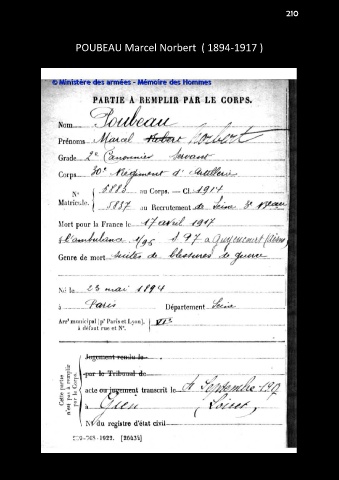 210
POUBEAU Marcel Norbert ( 1894-1917 )
© Ministère des armées - Mémoire des Hommes
PARTIE À REMPLIR PAR LE CORPS.
Nom Poubeau
Prénoms Marcel Norbert
Grade 2e Canonnier Servant
Corps 30e Régiment d'Artillerie
N° 6883 au Corps. — Cl. 1914
Matricule. 5837 au Recrutement de Seine
Mort pour la France le 17 avril 1917
à l'ambulance 1/96 à Guyencourt (Aisne)
Genre de mort suites de blessures de guerre
Né le 23 mai 1894
à Paris Département Seine
Arr! municipal (p! Paris et Lyon),
à défaut rue et N°.
Cette partie
n'est pas à remplir
par le Corps.
Jugement rendu le
par le Tribunal de
acte ou jugement transcrit le Septembre
à Gien (Loiret)
N° du registre d'état civil
[26434]